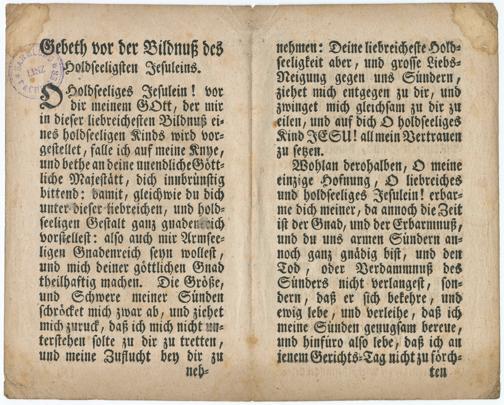 Gebeth vor der Bildnuß des
Holdseeligsten Jesuleins.
O Holdseeliges Jesulein! vor
dir meinem GOtt, der mir
in dieser liebreichesten Bildnuß ei-
nes holdseeligen Kinds wird vor-
gestellet, falle ich auf meine Knye,
und bethe an deine unendliche Gött-
liche Majestätt, dich innbrünstig
bittend: damit, gleichwie du dich
unter dieser liebreichen, und hold-
seeligen Gestalt ganz gnadenreich
vorstellest: also auch mir Armsee-
ligen Gnadenreich seyn wollest,
und mich deiner göttlichen Gnad
theilhaftig machen. Die Größe,
und Schwere meiner Sünden
schröcket mich zwar ab, und ziehet
mich zuruck, daß ich mich nicht un-
terstehen solte zu dir zu tretten,
und meine Zuflucht bey dir zu
neh-
nehmen: Deine liebreicheste Hold-
seeligkeit aber, und grosse Liebs-
Neigung gegen uns Sündern,
ziehet mich entgegen zu dir, und
zwinget mich gleichsam zu dir zu
eilen, und auf dich O holdseeliges
Kind JESU! all mein Vertrauen
zu setzen.
Wohlan derohalben, O meine
einzige Hofnung, O liebreiches
und holdseeliges Jesulein! erbar-
me dich meiner, da annoch die Zeit
ist der Gnad, und der Erbarmnuß,
und du uns armen Sündern an-
noch ganz gnädig bist, und den
Tod, oder Verdammnuß des
Sünders nicht verlangest, son-
dern, daß er sich bekehre, und
ewig lebe, und verleihe, daß ich
meine Sünden genugsam bereue,
und hinfüro also lebe, daß ich an
jenem Gerichts-Tag nicht zu förch-
ten
LINZ